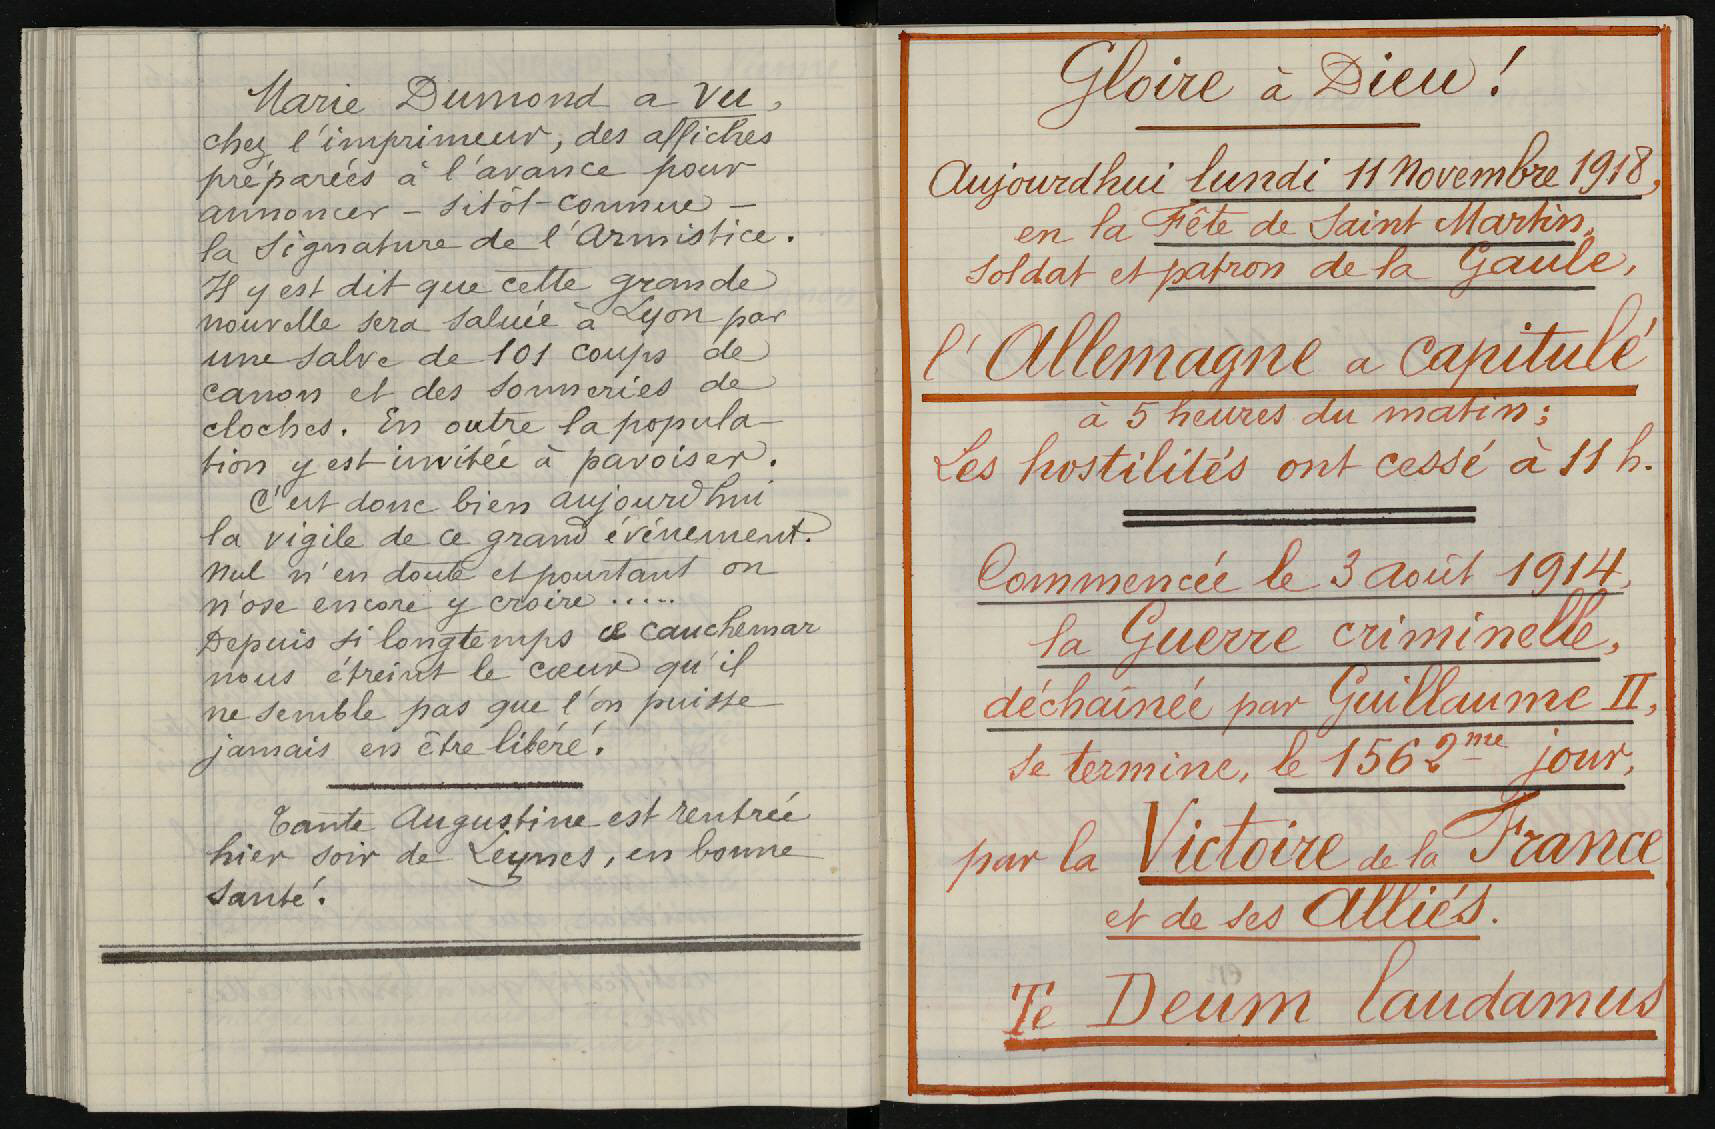 Marie Dumond a vu,
chez l'imprimeur, des affiches
préparées à l'avance pour
annoncer – sitôt connue –
la signature de l'Armistice.
Il y est dit que cette grande
nouvelle sera saluée à Lyon par
une salve de 101 coups de
canon et des sonneries de
cloches. En outre la popula-
tion y est invitée à pavoiser.
C'est donc bien aujourd'hui
la vigile de ce grand événement.
Nul n'en doute et pourtant on
n'ose encore y croire .....
Depuis si longtemps ce cauchemar
nous étreint le cœur qu'il
ne semble pas que l'on puisse
jamais en être libéré.
Tante Augustine est rentrée
hier soir de Leynes, en bonne
santé.
Gloire à Dieu !
Aujourdhui lundi 11 Novembre 1918,
en la Fête de Saint Martin,
soldat et patron de la Gaule,
l'Allemagne a capitulé
à 5 heures du matin ;
Les hostilités ont cessé à 11 h.
Commencée le 3 août 1914,
la Guerre criminelle,
déchaînée par Guillaume II,
se termine, le 1562me jour,
par la Victoire de la France
et de ses Alliés.
Te Deum laudamus